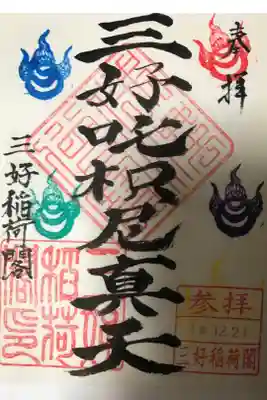 奉拝
三好吒枳尼真天
三好稲荷閣
参拝
三好稲荷閣